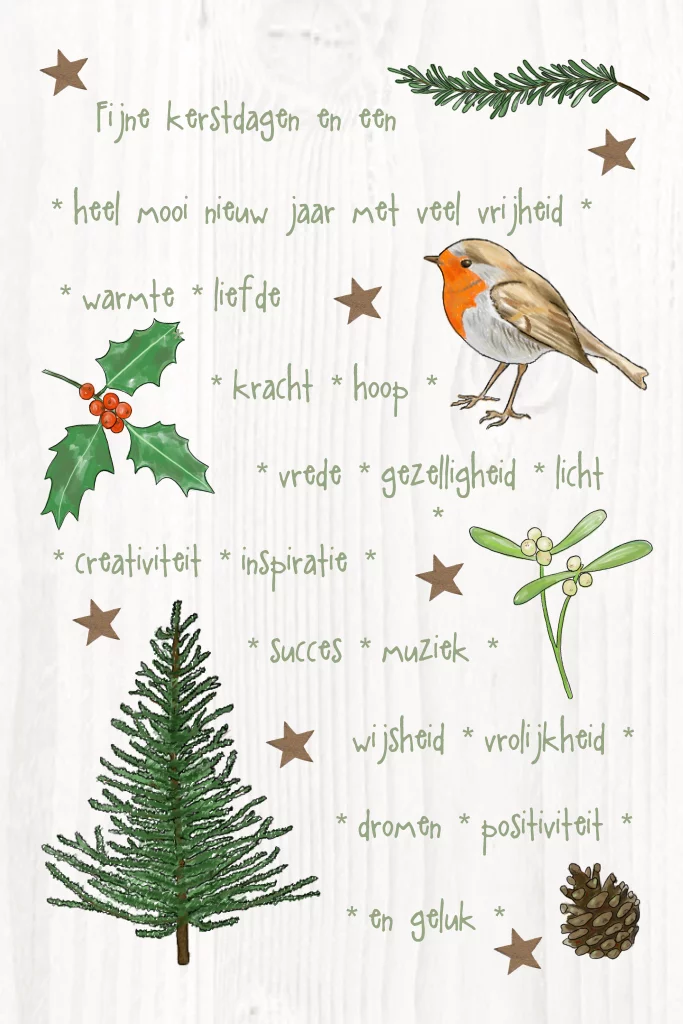 Fijne kerstdagen en een
* heel mooi nieuw jaar met veel vrijheid *
* warmte * liefde
* kracht * hoop *
* vrede * gezelligheid * licht
*
* creativiteit * inspiratie *
* succes * muziek *
wijsheid * vrolijkheid *
* dromen * positiviteit *
* en geluk *